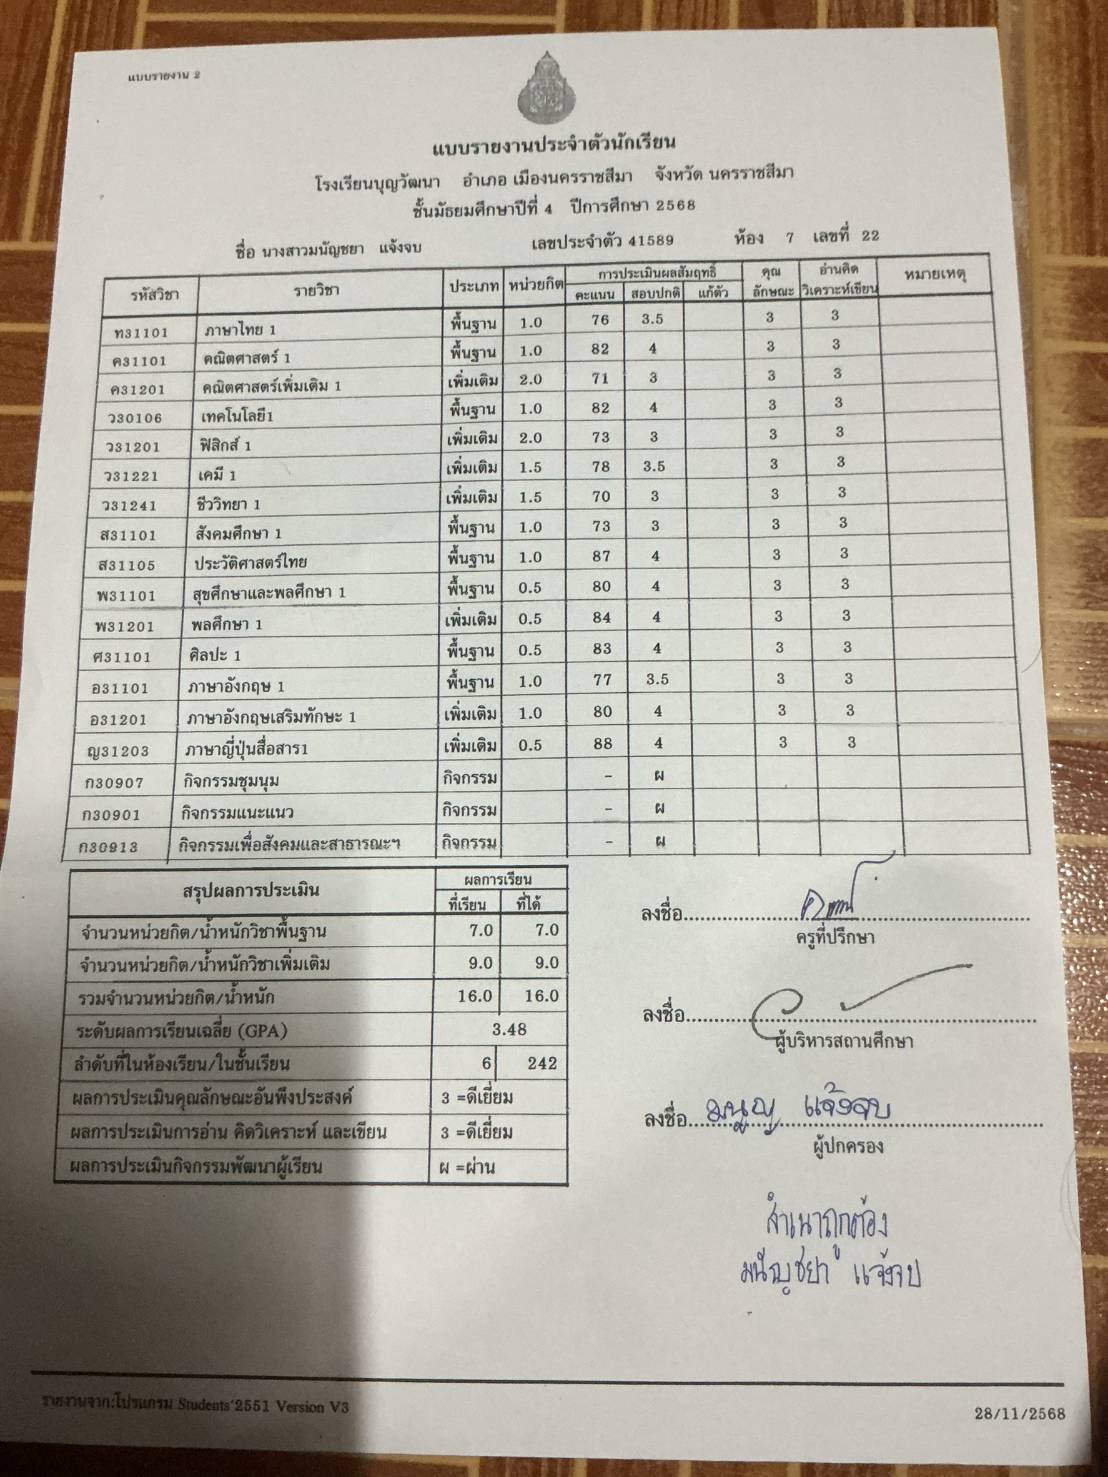 แบบรายงาน 2
แบบรายงานประจำตัวนักเรียน
โรงเรียนบุญวัฒนา อำเภอ เมืองนครราชสีมา จังหวัด นครราชสีมา
ชั้นมัธยมศึกษาปีที่ 4 ปีการศึกษา 2568
ชื่อ นางสาวมนัญชยา แจ้งจบ เลขประจำตัว 41589 ห้อง 7 เลขที่ 22
รหัสวิชา รายวิชา ประเภท หน่วยกิต การประเมินผลสัมฤทธิ์ คุณ อ่านคิด หมายเหตุ
คะแนน สอบปกติ แก้ตัว ลักษณะ วิเคราะห์เขียน
ท31101 ภาษาไทย 1 พื้นฐาน 1.0 76 3.5 3 3
ค31101 คณิตศาสตร์ 1 พื้นฐาน 1.0 82 4 3 3
ค31201 คณิตศาสตร์เพิ่มเติม 1 เพิ่มเติม 2.0 71 3 3 3
ว30106 เทคโนโลยี1 พื้นฐาน 1.0 82 4 3 3
ว31201 ฟิสิกส์ 1 เพิ่มเติม 2.0 73 3 3 3
ว31221 เคมี 1 เพิ่มเติม 1.5 78 3.5 3 3
ว31241 ชีววิทยา 1 เพิ่มเติม 1.5 70 3 3 3
ส31101 สังคมศึกษา 1 พื้นฐาน 1.0 73 3 3 3
ส31105 ประวัติศาสตร์ไทย พื้นฐาน 1.0 87 4 3 3
พ31101 สุขศึกษาและพลศึกษา 1 พื้นฐาน 0.5 80 4 3 3
พ31201 พลศึกษา 1 เพิ่มเติม 0.5 84 4 3 3
ศ31101 ศิลปะ 1 พื้นฐาน 0.5 83 4 3 3
อ31101 ภาษาอังกฤษ 1 พื้นฐาน 1.0 77 3.5 3 3
อ31201 ภาษาอังกฤษเสริมทักษะ 1 เพิ่มเติม 1.0 80 4 3 3
ญ31203 ภาษาญี่ปุ่นสื่อสาร1 เพิ่มเติม 0.5 88 4 3 3
ก30907 กิจกรรมชุมนุม กิจกรรม - ผ
ก30901 กิจกรรมแนะแนว กิจกรรม - ผ
ก30913 กิจกรรมเพื่อสังคมและสาธารณะฯ กิจกรรม - ผ
สรุปผลการประเมิน ผลการเรียน
ที่เรียน ที่ได้
จำนวนหน่วยกิต/น้ำหนักวิชาพื้นฐาน 7.0 7.0
จำนวนหน่วยกิต/น้ำหนักวิชาเพิ่มเติม 9.0 9.0
รวมจำนวนหน่วยกิต/น้ำหนัก 16.0 16.0
ระดับผลการเรียนเฉลี่ย (GPA) 3.48
ลำดับที่ในห้องเรียน/ในชั้นเรียน 6 242
ผลการประเมินคุณลักษณะอันพึงประสงค์ 3 =ดีเยี่ยม
ผลการประเมินการอ่าน คิดวิเคราะห์ และเขียน 3 =ดีเยี่ยม
ผลการประเมินกิจกรรมพัฒนาผู้เรียน ผ =ผ่าน
ลงชื่อ
ครูที่ปรึกษา
ลงชื่อ
ผู้บริหารสถานศึกษา
ลงชื่อ มนูญ แจ้งจบ
ผู้ปกครอง
สำเนาถูกต้อง
มนัญชยา แจ้งจบ
รายงานจาก:โปรแกรม Students'2551 Version V3
28/11/2568